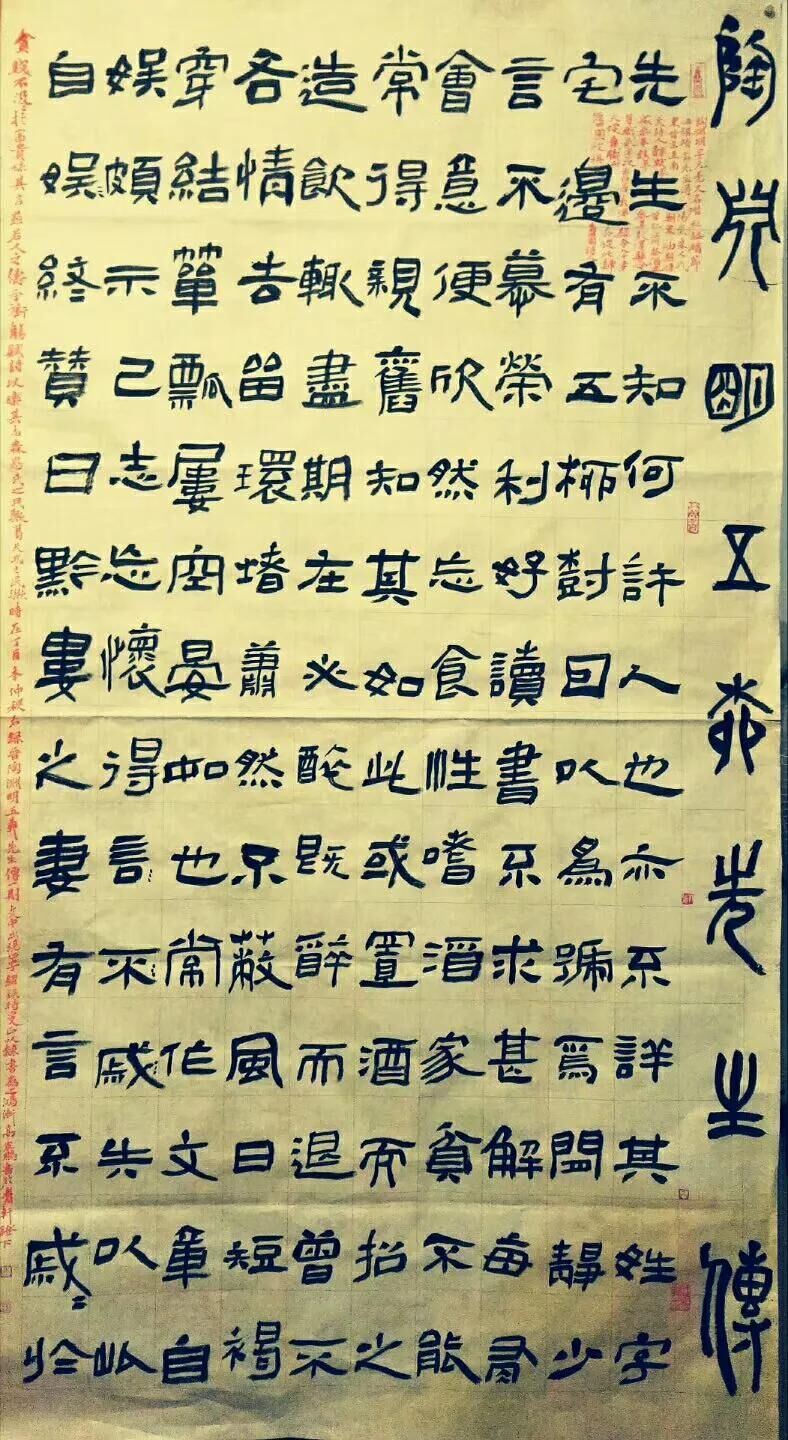 陶淵明五柳先生傳
先生不知何許人也亦不詳其姓字
宅邊有五柳樹因以為號焉閑靜少
言不慕榮利好讀書不求甚解每有
會意便欣然忘食性嗜酒家貧不能
常得親舊知其如此或置酒而招之
造飲輒盡期在必醉既醉而退曾不
吝情去留環堵蕭然不蔽風日短褐
穿結簞瓢屢空晏如也常作文章自
娛頗示己志忘懷得言不戚失以此
自娛終贊曰黔婁之妻有言不戚〻於
貧賤不汲〻於富貴味其言茲若人之儔乎銜觴賦詩以樂其志無懷氏之民歟葛天氏之民歟時在丁酉年仲秋右錄晉陶淵明五柳先生傳一則